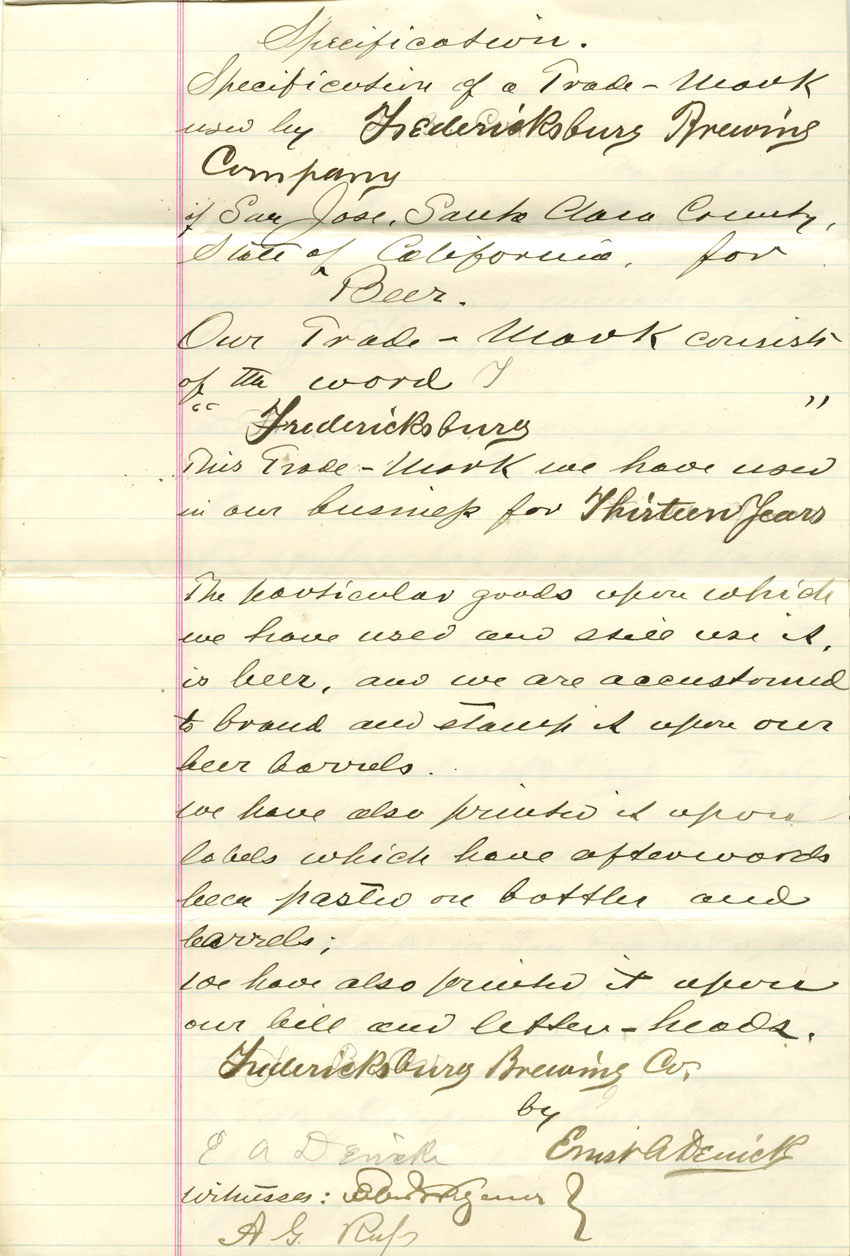 Specification.
Specification of a Trade-Mark
used by Fredericksburg Brewing
Company
of San Jose, Santa Clara County,
State of California, for
Beer.
Our Trade-Mark consists
of the word
" Fredericksburg "
This Trade-Mark we have used
in our business for Thirteen Years
The particular goods upon which
we have used and still use it,
is beer, and we are accustomed
to brand and stamp it upon our
beer barrels.
We have also printed it upon
labels which have afterwards
been pasted on bottles and
barrels;
We have also printed it upon
our bill and letter-heads.
Fredericksburg Brewing Co.
by
E A Denicke Ernst A Denicke
Witnesses:
A G Ruſs